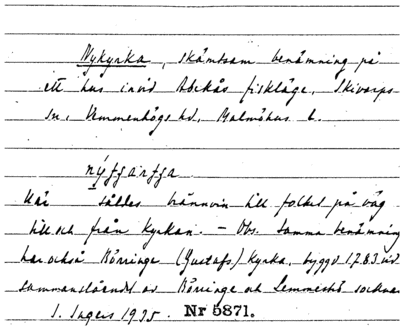 Nykyrka, skämtsam benämning på
ett hus invid Abekås fiskläge, Skivarps
sn, Vemmenhögs hd, Malmöhus l.
nýȷȷarȷȷa
Här såldes brännvin till folket på väg
till och från kyrkan. – Obs. Samma benämning
har också Börringe (Gustafs) kyrka, byggd 1783 vid
sammanslåendet av Börringe och Lemmeströ socknar
I. Ingers 1935. Nr 5871.